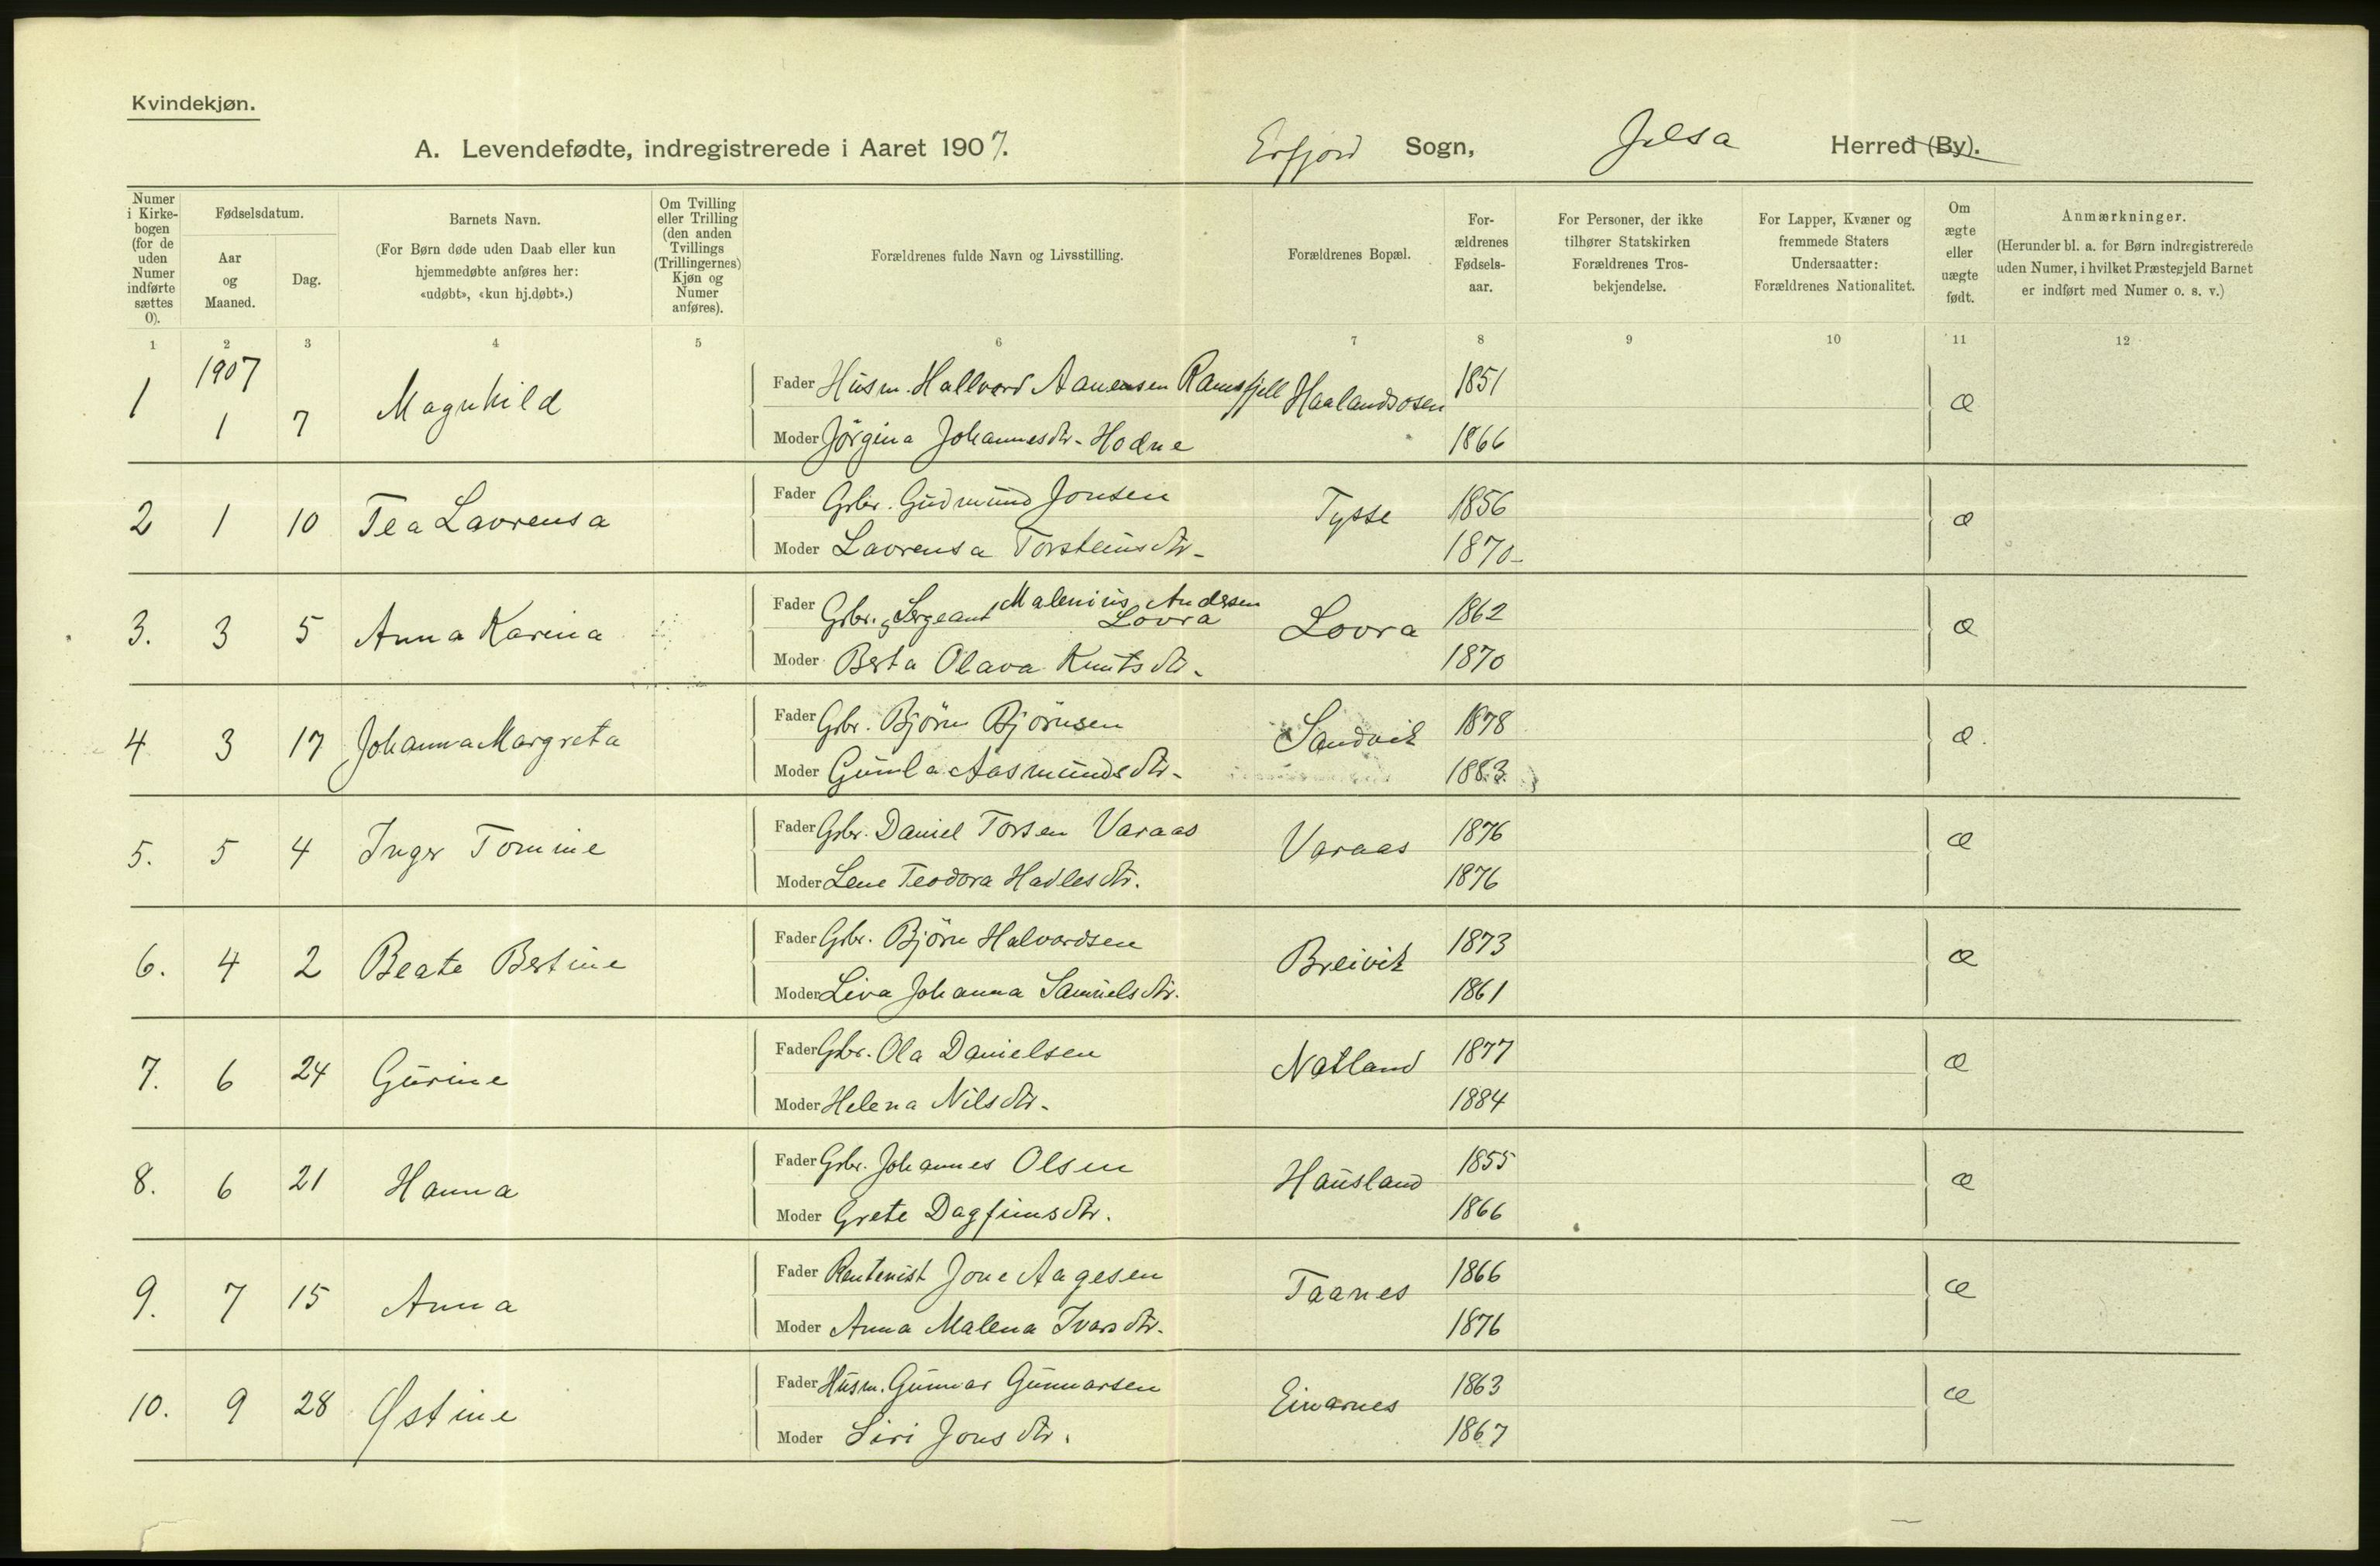 Kvindekjøn.
A. Levendefødte, indregistrerede i Aaret 1907. Erfjord Sogn, Jelsa Herred (By).
Numer i Kirkebogen (for de uden Numer indførte sættes 0).
Fødselsdatum.
Aar og Maaned.
Dag.
Barnets Navn.
(For Børn døde uden Daab eller kun hjemmedøbte anføres her: «udøbt», «kun hj.døbt».)
Om Tvilling eller Trilling (den anden Tvillings (Trillingernes) Kjøn og Numer anføres).
Forældrenes fulde Navn og Livsstilling.
Forældrenes Bopæl.
Forældrenes Fødselsaar.
For Personer, der ikke tilhører Statskirken Forældrenes Trosbekjendelse.
For Lapper, Kvæner og fremmede Staters Undersaatter: Forældrenes Nationalitet.
Om ægte eller uægte født.
Anmærkninger.
(Herunder bl. a. for Børn indregistrerede uden Numer, i hvilket Præstegjeld Barnet er indført med Numer o. s. v.)
1 2 3 4 5 6 7 8 9 10 11 12
1907
1 1 7 Magnhild Fader Husm. Hallvard Aanensen Ramsfjell Haalandsosen 1851 æ
Moder Jörgina Johannesdtr. Hodne 1866
2 1 10 Tea Lavrensa Fader Gbr. Gudmund Jonsen Tysse 1856 æ
Moder Lavrensa Torsteinsdtr. 1870
3. 3 5 Anna Karina Fader Gbr. & Sergeant Malenius Andersen Lovra Lovra 1862 æ
Moder Berta Olava Knutsdtr. 1870
4 3 17 Johanna Margreta Fader Gbr. Bjørn Bjørnsen Sandvik 1878 æ.
Moder Gunla Aasmundsdtr. 1883
5. 5 4 Inger Tomine Fader Gbr. Daniel Torsen Varaas Varaas 1876 æ
Moder Lene Teodora Hadlesdtr. 1876
6. 4 2 Beate Bertine Fader Gbr. Bjørn Halvardsen Breivik 1873 æ
Moder Liva Johanna Samuelsdtr. 1861
7. 6 24 Gurine Fader Gbr. Ola Danielsen Natland 1877 æ
Moder Helena Nilsdtr. 1884
8. 6 21 Hanna Fader Gbr. Johannes Olsen Hausland 1855 æ
Moder Grete Dagfinnsdtr. 1866
9. 7 15 Anna Fader Rentenist Jone Aagesen Taanes 1866 æ
Moder Anna Malena Ivarsdtr. 1876
10. 9 28 Østine Fader Husm. Gunnar Gunnarsen Eivarnes 1863 æ
Moder Siri Jonsdtr. 1867